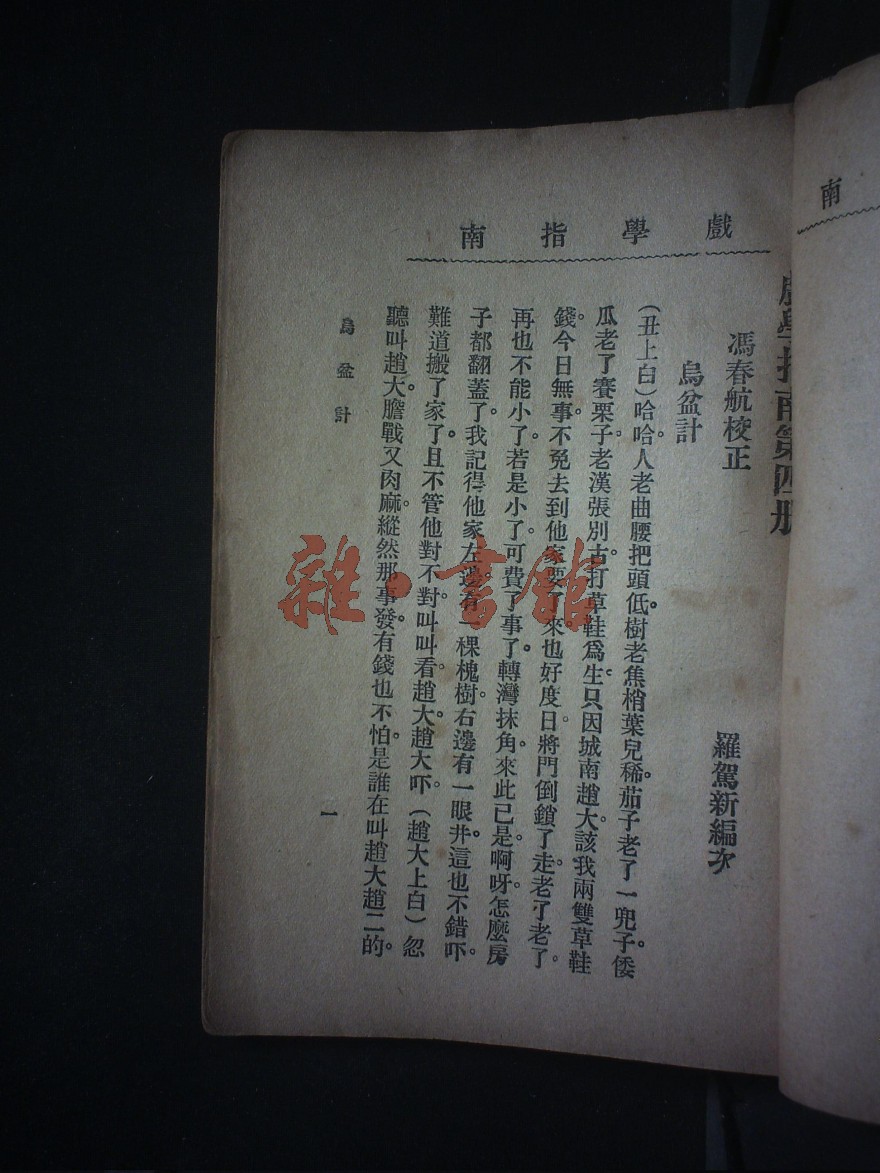 戲學指南
戲學指南第四册
馮春航校正
羅駕新編次
烏盆計
(丑上白)哈哈人老曲腰把頭低。樹老焦梢葉兒稀。茄子老了一兜子。倭
瓜老了賽栗子。老漢張別古。打草鞋爲生。只因城南趙大。該我兩雙草鞋
錢。今日無事。不免去到他家要了來。也好度日。將門倒鎖了走。老了老了。
再也不能小了。若是小了。可費了事了。轉灣抹角。來此已是。啊呀。怎麼房
子都翻蓋了。我記得他家左邊有一棵槐樹。右邊有一眼井。這也不錯吓。
難道搬了家了。且不管他對不對。叫叫看。趙大。趙大吓(趙大上白)忽
聽叫趙大。膽戰又肉麻。縱然那事發。有錢也不怕。是誰在叫趙大趙二的。
烏盆計
一
南
雜·書館